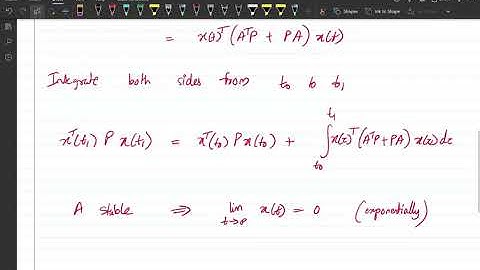 = x(t)ᵀ (AᵀP + PA) x(t)
Integrate both sides from t₀ to t₁
xᵀ(t₁) P x(t₁) = xᵀ(t₀) P x(t₀) + ∫_{t₀}^{t₁} x(τ)ᵀ (AᵀP + PA) x(τ) dτ
A stable ⇒ lim_{t→∞} x(t) = 0 (exponentially)